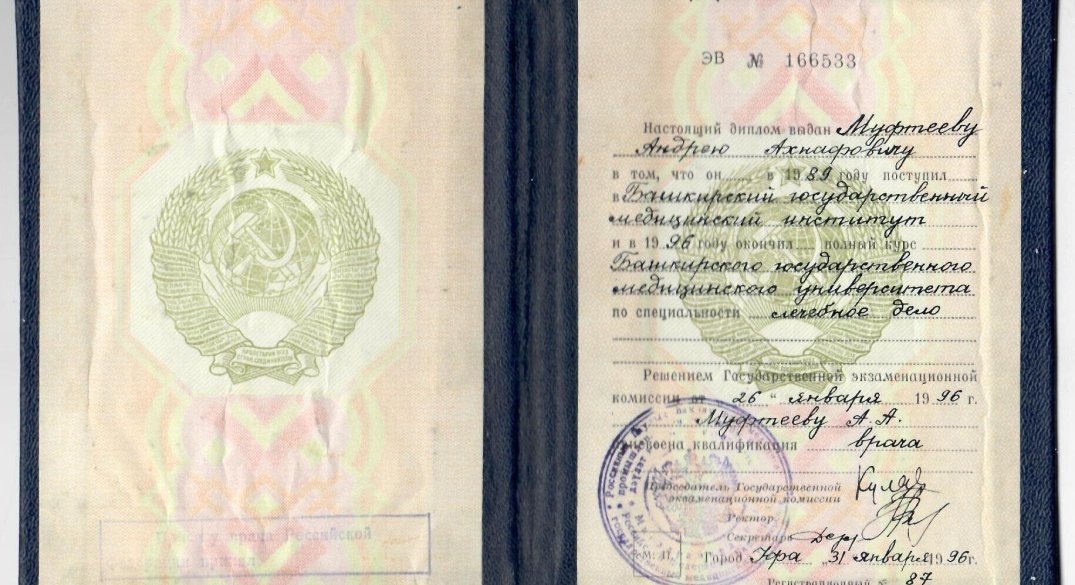 ПРОЛЕТАРИИ ВСЕХ
СТРАН, СОЕДИНЯЙТЕСЬ!
Российской
ЭВ № 166533
Настоящий диплом выдан Муфтееву
Андрею Ахнафовичу
в том, что он в 1989 году поступил
в Башкирский государственный
медицинский институт
и в 1996 году окончил полный курс
Башкирского государственного
медицинского университета
по специальности лечебное дело
Решением Государственной экзаменационной
комиссии от "26" января 1996 г.
Муфтееву А. А.
присвоена квалификация врача
Председатель Государственной
экзаменационной комиссии
Ректор
Секретарь
М. П. Город Уфа 31 января 1996 г.
Регистрационный № 87